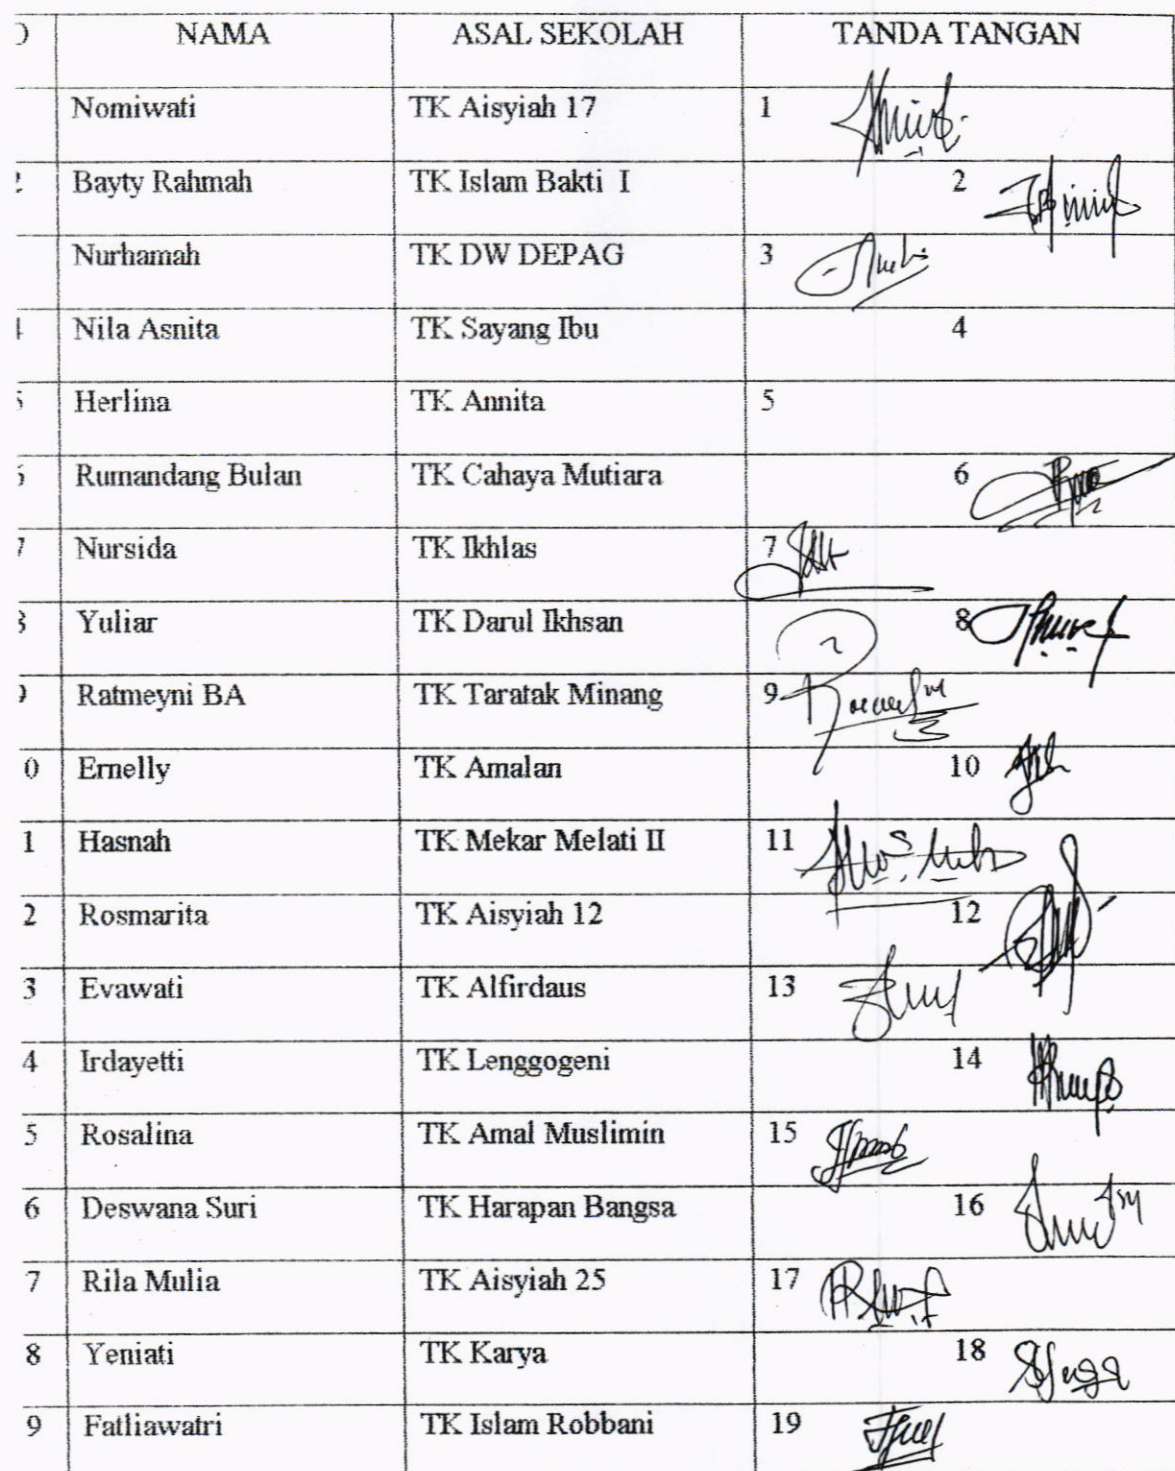 NAMA ASAL SEKOLAH TANDA TANGAN
Nomiwati TK Aisyiah 17 1
Bayty Rahmah TK Islam Bakti I 2
Nurhamah TK DW DEPAG 3
4 Nila Asnita TK Sayang Ibu 4
Herlina TK Annita 5
Rumandang Bulan TK Cahaya Mutiara 6
7 Nursida TK Ikhlas 7
Yuliar TK Darul Ikhsan 8
Ratmeyni BA TK Taratak Minang 9
0 Ernelly TK Amalan 10
1 Hasnah TK Mekar Melati II 11
2 Rosmarita TK Aisyiah 12 12
3 Evawati TK Alfirdaus 13
4 Irdayetti TK Lenggogeni 14
5 Rosalina TK Amal Muslimin 15
6 Deswana Suri TK Harapan Bangsa 16
7 Rila Mulia TK Aisyiah 25 17
8 Yeniati TK Karya 18
9 Fatliawatri TK Islam Robbani 19